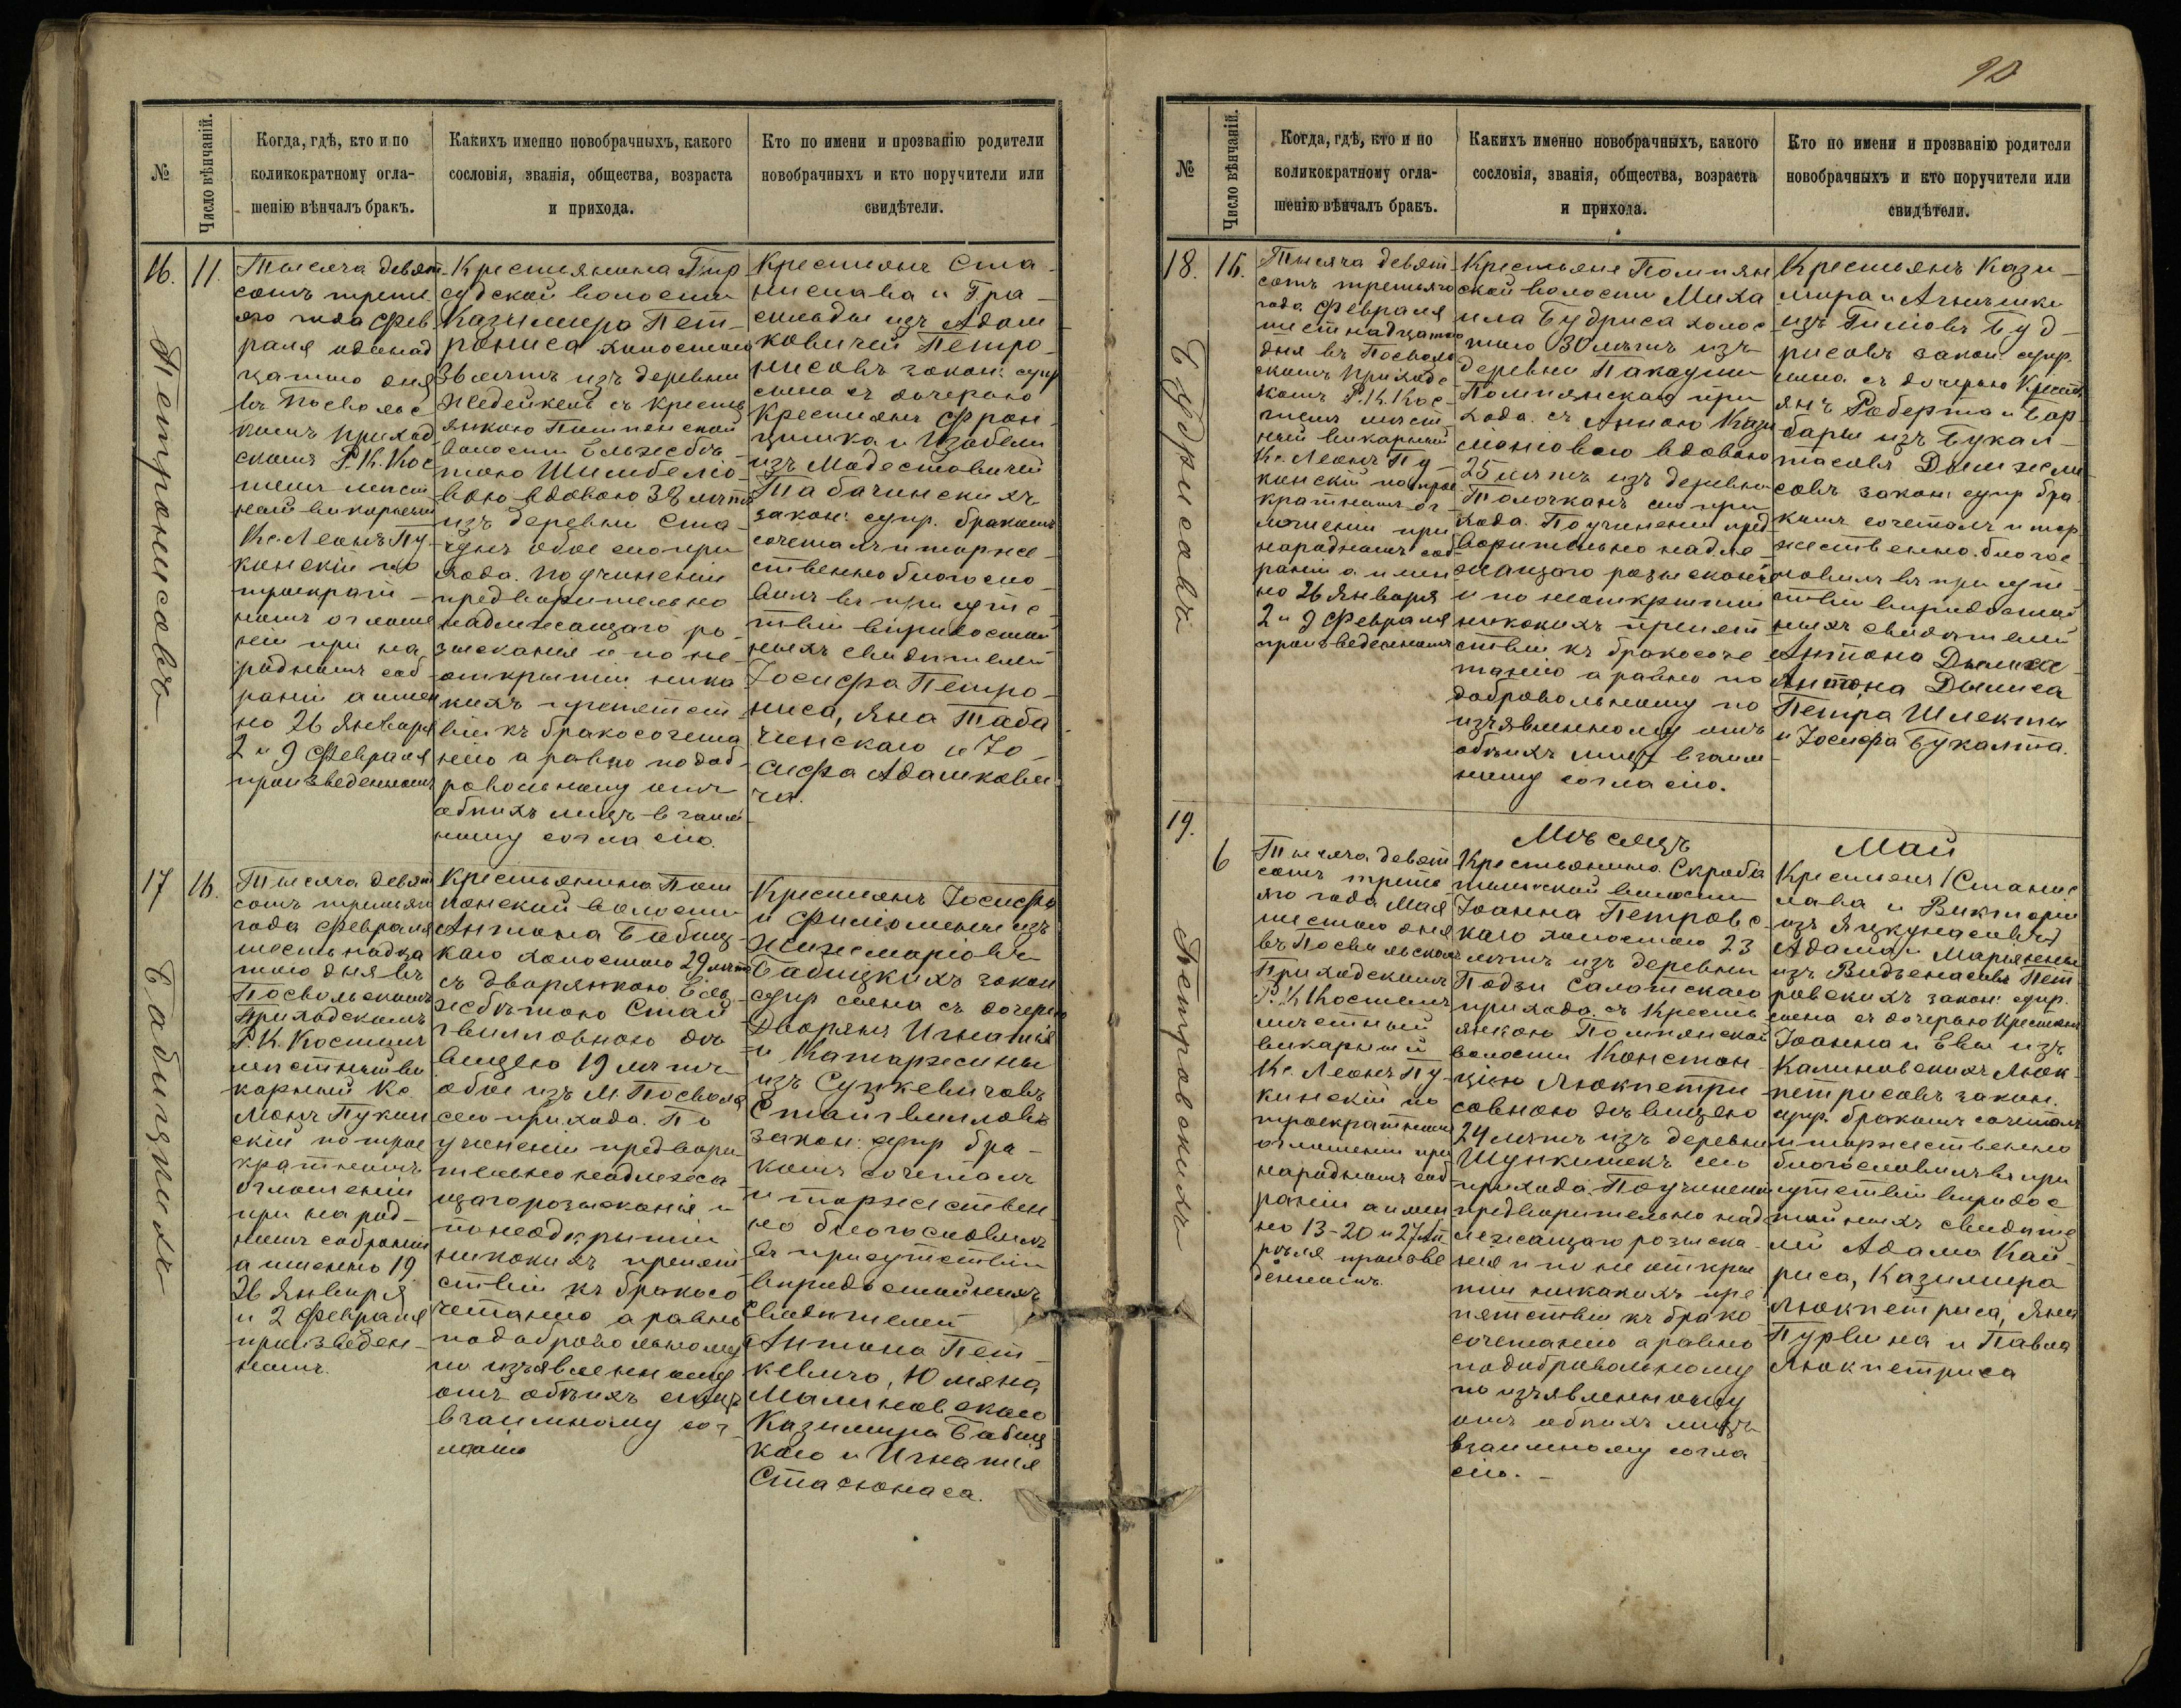 90
№
Число вѣнчаній.
Когда, гдѣ, кто и по
коликократному огла-
шенію вѣнчалъ бракъ.
Какихъ именно новобрачныхъ, какого
сословія, званія, общества, возраста
и прихода.
Кто по имени и прозванію родители
новобрачныхъ и кто поручители или
свидѣтели.
16.
Петронисовъ
11.
Тысяча девят
сотъ треть
яго года Фев
раля одинад
цатого дня
въ Посвольс
комъ приход
скомъ Р. К. Кос
телѣ мѣст
ный викарный
Кс. Леонъ Пу
кинскій по
троекрат-
номъ оглаше
ніи при на
родномъ соб
раніи а имен
но 26 Января
2 и 9 Февраля
произведенномъ
Крестьянина
судской волости
Казимира Пет-
рониса холостого
лѣтъ изъ деревни
съ Кресть
янкою Помпянской
волости Ельжбѣ
тою
вою вдовою 38 лѣтъ
изъ деревни Ста
чунъ обое сего при
хода. По учиненіи
предварительно
надлежащаго ро
зысканія и по не
открытіи ника
кихъ препятст
вій къ бракосочета
нію а равно по доб
ровольному отъ
обѣихъ лицъ взаим
ному согласію.
Крестьянъ Ста-
нислава и Гра-
сильды изъ Адам
ковичей Петро-
нисовъ закон: супр
сына съ дочерью
Крестьянъ Фран-
цишка и Изабели
изъ Модестовичей
Табачинскихъ
закон: супр. бракомъ
сочеталъ и торже-
ственно благосло-
вилъ въ присутс-
твіи вѣродостой
ныхъ свидѣтелей
Іосифа Петро-
ниса, Яна Таба
чинскаго и Іо-
сифа Адамкови
ча.
17
Бабицкихъ
16.
Тысяча девят
сотъ третьяго
года Февраля
шестьнадца
того дня въ
Посвольскомъ
Приходскомъ
Р. К. Костелѣ
мѣстный ви
карный Кс
Леонъ Пукин
скій по трое
кратномъ
оглашеніи
при народ-
номъ собраніи
а именно 19
26 Января
и 2 Февраля
произведен-
номъ.
Крестьянина Пом
пянской волости
Антона Бабиц-
каго холостого 29 лѣтъ
съ дворянкою Ель
жбѣтою Стан
гвилловною дѣ
вицею 19 лѣтъ
обое изъ М. Посволя
сего прихода. По
учиненіи предвари
тельно надлежа
щаго розысканія и
по неоткрытіи
никакихъ препят
ствій къ бракосо
четанію а равно
по добровольному
по изъявленному
отъ обѣихъ лицъ
взаимному сог-
ласію
Крестьянъ Іосифа
и Филомены изъ
Бабицкихъ закон
супр сына съ дочерью
Дворянъ Игнатія
и Катаржины
изъ Суткевичовъ
Стангвилловъ
закон: супр бра-
комъ сочеталъ
и торжествен-
но благословилъ
въ присутствіи
вѣродостойныхъ
свидѣтелей
Антона Пет-
кевича, Юляна
Малиновскаго
Казимира Бабиц
каго и Игнатія
Стасюнаса.
№
Число вѣнчаній.
Когда, гдѣ, кто и по
коликократному огла-
шенію вѣнчалъ бракъ.
Какихъ именно новобрачныхъ, какого
сословія, званія, общества, возраста
и прихода.
Кто по имени и прозванію родители
новобрачныхъ и кто поручители или
свидѣтели.
18.
Будрисовъ
16.
Тысяча девят
сотъ третьяго
года Февраля
шестнадцатого
дня въ Посволь
скомъ Приходс
комъ Р. К. Кос-
телѣ мѣст
ный викарный
Кс. Леонъ Пу-
кинскій по трое
кратномъ ог-
лашеніи при
народномъ соб
раніи а имен
но 26 Января
2 и 9 Февраля
произведенномъ
Крестьяне Помпян
ской волости Миха
ила Будриса холос
того 30 лѣтъ изъ
деревни
Помпянскаго при
хода съ Анною Кази
міоновою вдовою
25 лѣтъ изъ деревни
Толочканъ сего при
хода. По учиненіи пред
варительно надле
жащаго розысканія
и по неоткрытіи
никакихъ препят
ствій къ бракосоче
танію а равно по
добровольному по
изъявленному отъ
обѣихъ лицъ взаим
ному согласію.
Крестьянъ Кази-
мира и Агнѣшки
изъ Буд-
рисовъ закон: супр.
сына съ дочерью Кресть
янъ Роберта и Вар
бары изъ Букал-
тасовъ
закон: супр бра
комъ сочеталъ и тор
жественно благос
ловилъ въ присут
ствіи вѣродостой
ныхъ свидѣтелей
Антона
Антона Дылиса
Петра Шлекты
и Іосифа Букалта.
19.
Петровскихъ
Мѣсяцъ
Май
6
Тысяча девят
сотъ треть
яго года Мая
шестого дня
въ Посвольскомъ
Приходскомъ
Р. К. Костелѣ
мѣстный
викарный
Кс. Леонъ Пу-
кинскій по
троекратномъ
оглашеніи при
народномъ соб
раніи а имен
но 13-20 и 27 Ап
рѣля произве
денномъ.
Крестьянина Скроба
тишской волости
Іоанна Петровс-
каго холостого 23
лѣтъ изъ деревни
Подзи Салатскаго
прихода съ Кресть
янкою Помпянской
волости Констан
цію Люкпетри
совною дѣвицею
24 лѣтъ изъ деревни
сего
прихода. По учиненіи
предварительно над
лежащаго розыска
нія и по не откры
тіи никакихъ пре
пятствій къ брако
сочетанію а равно
по добровольному
по изъявленному
отъ обѣихъ лицъ
взаимному согла
сію.-
Крестьянъ (Станис
лава и Викторіи
изъ Яцкунасовъ)
Адама и Маріянны
изъ Пет
ровскихъ закон: супр.
сына съ дочерью Крестьянъ
Іоанна и Евы изъ
Калиновскихъ Люк
петрисовъ закон.
супр. бракомъ сочеталъ
и торжественно
благословилъ въ при
сутствіи вѣродос
тойныхъ свидѣте
лей Адама Кай
риса, Казимира
Люкпетриса, Яна
Пурвина и Павла
Люкпетриса